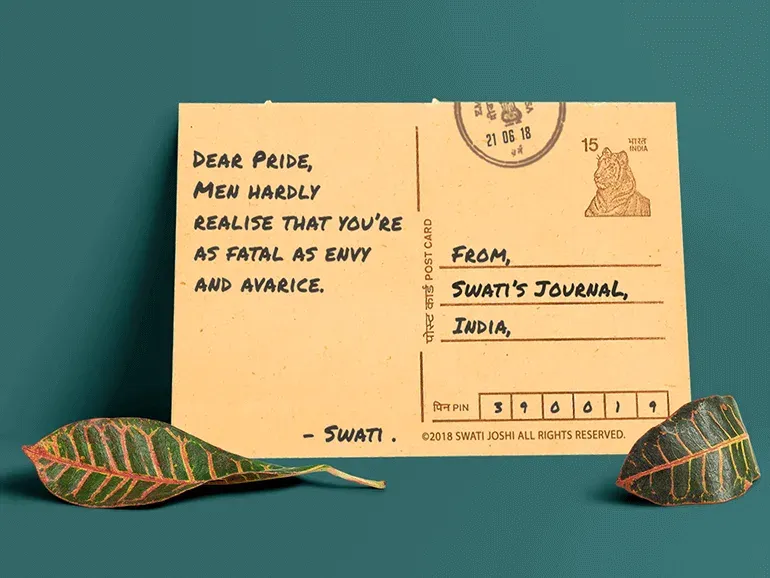 DEAR PRIDE,
MEN HARDLY
REALISE THAT YOU'RE
AS FATAL AS ENVY
AND AVARICE.
- SWATI .
21 06 18
15 भारत
INDIA
पोस्ट कार्ड POST CARD
FROM,
SWATI'S JOURNAL,
INDIA,
पिन PIN 3 9 0 0 1 9
©2018 SWATI JOSHI ALL RIGHTS RESERVED.